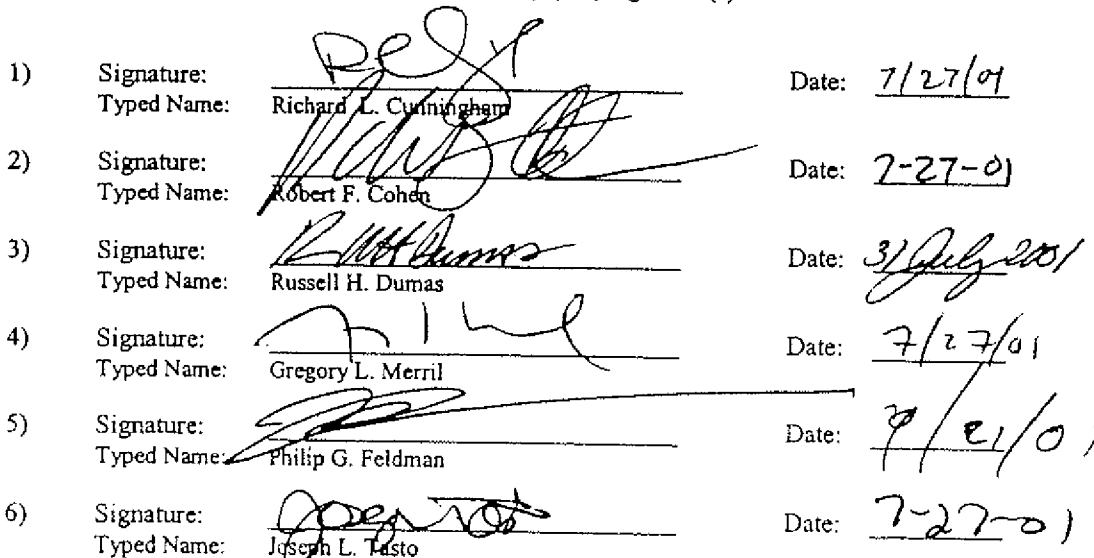 1) Signature: Date: 7/27/01
Typed Name: Richard L. Cunningham
2) Signature: Date: 7-27-01
Typed Name: Robert F. Cohen
3) Signature: Date: 31 July 2001
Typed Name: Russell H. Dumas
4) Signature: Date: 7/27/01
Typed Name: Gregory L. Merril
5) Signature: Date:
Typed Name: Philip G. Feldman
6) Signature: Date: 7-27-01
Typed Name: Joseph L. Tasto